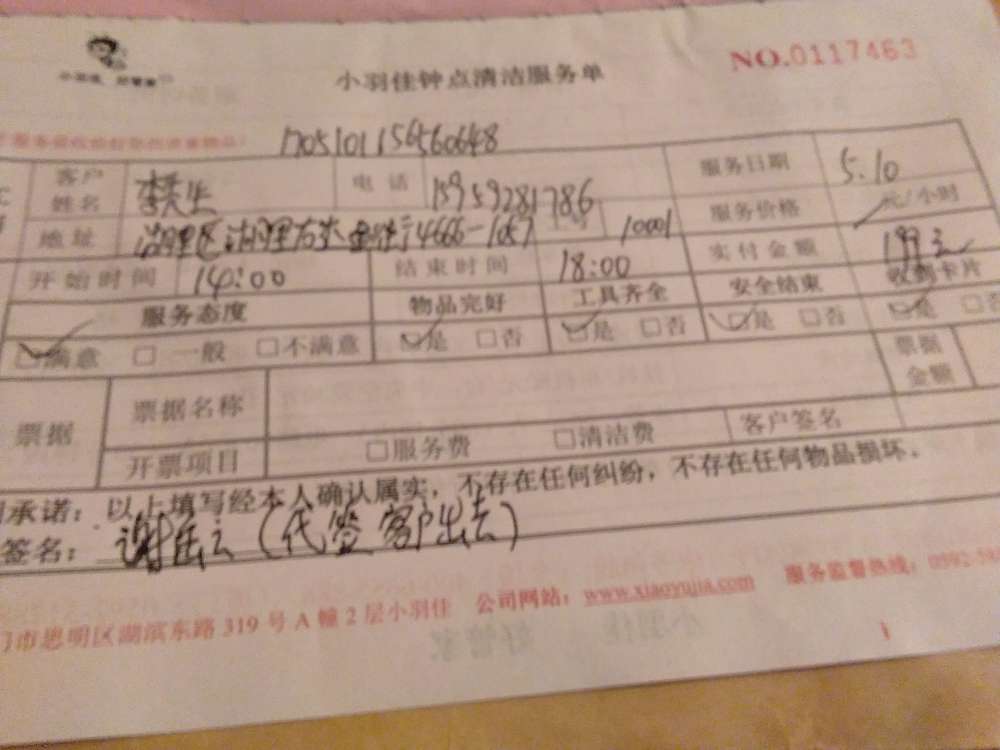 小羽佳钟点清洁服务单
NO.0117463
17051011564560648
客户姓名 李先生 电话 15959281786 服务日期 5.10
地址 湖里区湖里 4666-1057 10001 服务价格 元/小时
开始时间 14:00 结束时间 18:00 实付金额 199元
服务态度 物品完好 工具齐全 安全结束 收到卡片
☑满意 □一般 □不满意 ☑是 □否 ☑是 □否 ☑是 □否 ☑是 □否
票据 票据名称 票据金额
开票项目 □服务费 □清洁费 客户签名
承诺：以上填写经本人确认属实，不存在任何纠纷，不存在任何物品损坏。
签名：谢 （代签 客户出去）
门市思明区湖滨东路319号A幢2层小羽佳 公司网站：www.xiaoyujia.com 服务监督热线：0592-